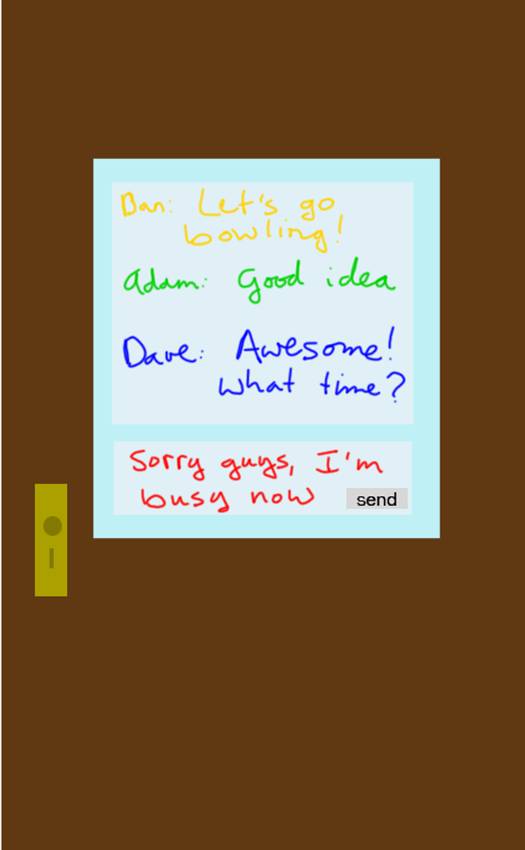 Dan: Let's go
bowling!
Adam: Good idea
Dave: Awesome!
What time?
Sorry guys, I'm
busy now
send